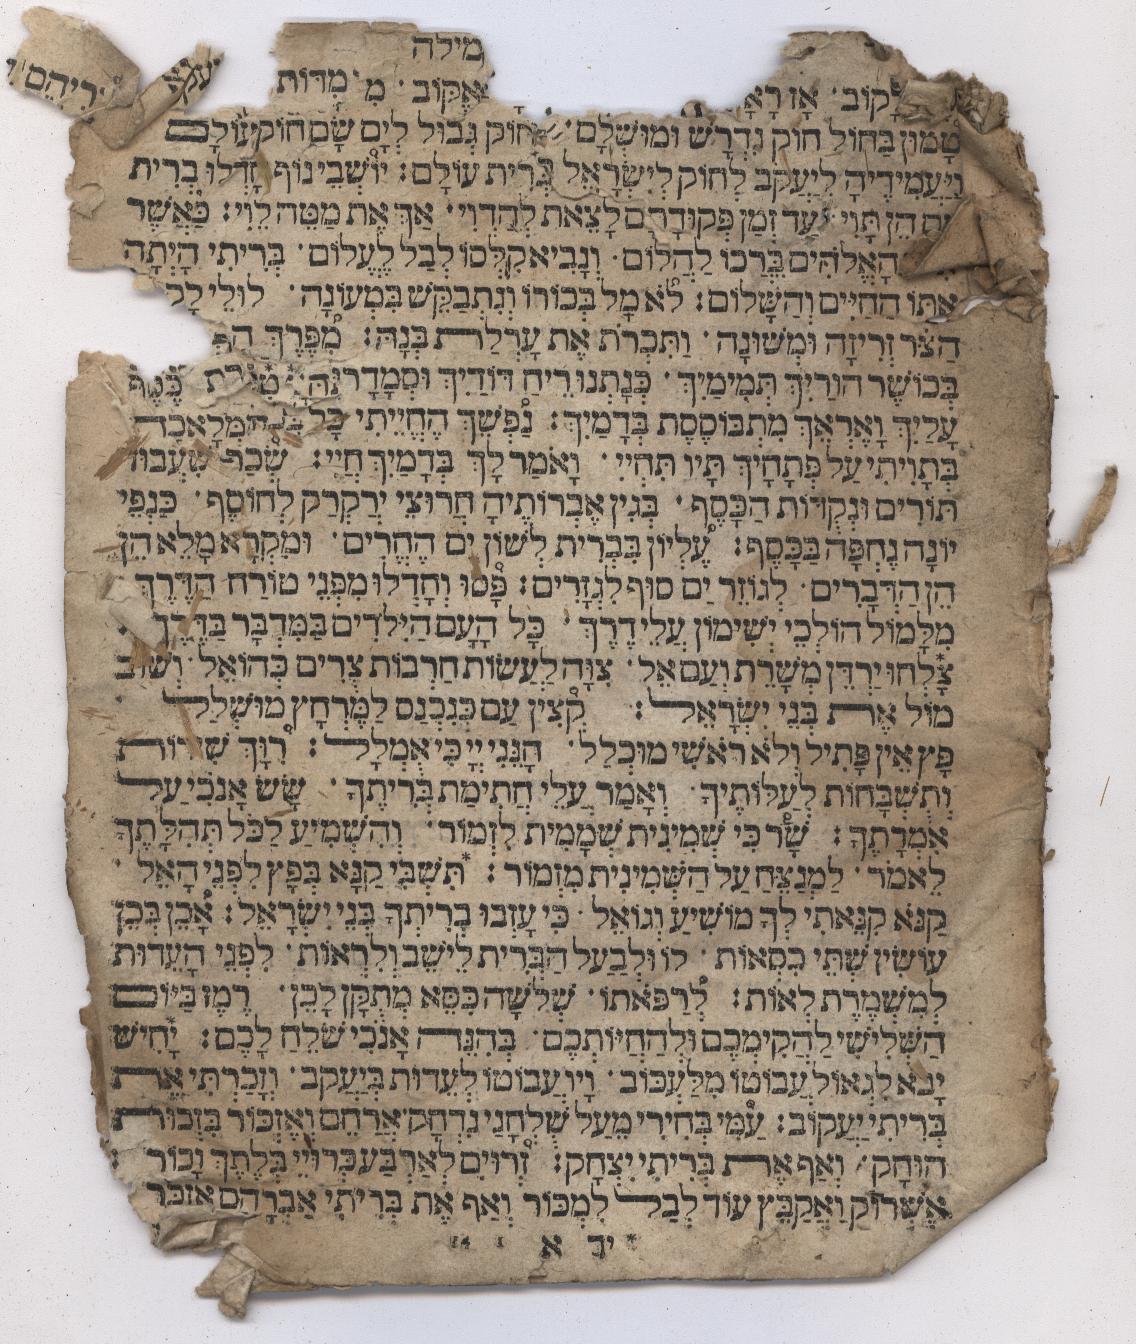 מילה
יעקב
טָמוּן בַּחוֹל חוֹק נִדְרָשׁ וּמוּשְׁלָם׳ חוֹק גְּבוּל לְיָם שָׂם חוֹק עוֹלָם
וַיַּעֲמִידֶיהָ לְיַעֲקֹב לְחוֹק לְיִשְׂרָאֵל בְּרִית עוֹלָם: יוֹשְׁבֵי נוֹף חָדְלוּ בְּרִית
הֵן תָּוִי׳ עַד זְמַן פְּקוּדָתָם לָצֵאת לְהַדְוִי׳ אַךְ אֶת מַטֵּה לֵוִי: כַּאֲשֶׁר
הָאֱלֹהִים בֵּרְכוֹ לַהֲלוֹם׳ וְנָבִיא קִלְּסוֹ לְבַל לְעָלוֹם׳ בְּרִיתִי הָיְתָה
אִתּוֹ הַחַיִּים וְהַשָּׁלוֹם: לֹא מָל בְּכוֹרוֹ וְנִתְבַּקֵּשׁ בִּמְעוֹנָה׳ לוּלֵי
הַצֹּר זְרִיזָה וּמְשׁוּנָה׳ וַתִּכְרֹת אֶת עָרְלַת בְּנָהּ: מִפֶּרֶךְ
בְּכוֹשֶׁר הוֹרַיִךְ תְּמִימַיִךְ׳ כְּנָתְנוּ רֵיחַ דּוֹדַיִךְ וּסְמָדָרַיִךְ
עָלַיִךְ וָאֶרְאֵךְ מִתְבּוֹסֶסֶת בְּדָמַיִךְ: נַפְשֵׁךְ הֶחֱיֵיתִי
בְּתָוִיתִי עַל פְּתָחַיִךְ תָּיו תִּחְיִי׳ וָאֹמַר לָךְ בְּדָמַיִךְ חֲיִי:
תּוֹרִים וּנְקֻדּוֹת הַכָּסֶף׳ בְּגִין אֶבְרוֹתֶיהָ חֲרוּצֵי יְרַקְרַק לְחוֹסֶף׳ כַּנְפֵי
יוֹנָה נֶחְפָּה בַכֶּסֶף: עֶלְיוֹן בִּבְרִית לְשׁוֹן יָם הֶחֱרִים׳ וּמִקְרָא מָלֵא הֵן
הֵן הַדְּבָרִים׳ לְגוֹזֵר יַם סוּף לִגְזָרִים: פָּסוּ וְחָדְלוּ מִפְּנֵי טוֹרַח הַדֶּרֶךְ
מִלָּמוֹל הוֹלְכֵי יְשִׁימוֹן עֲלֵי דֶרֶךְ׳ כָּל הָעָם הַיִּלּוֹדִים בַּמִּדְבָּר בַּדֶּרֶךְ:
צָלְחוּ יַרְדֵּן מְשָׁרֵת וְעַם אֵל׳ צִוָּה לַעֲשׂוֹת חַרְבוֹת צֻרִים כְּהוֹאֵל׳ וְשׁוּב
מוֹל אֶת בְּנֵי יִשְׂרָאֵל: קָצִין עַם כְּנִכְנַס לַמֶּרְחָץ מוּשְׁלָל
פָּץ אֵין פְּתִיל וְלֹא רֹאשִׁי מוּכְלָל׳ חָנֵּנִי יְיָ כִּי אֻמְלָל: רוֹךְ שִׁירוֹת
וְתִשְׁבָּחוֹת לְעַלּוֹתֶיךָ׳ וְאָמַר עֲלֵי חֲתִימַת בְּרִיתֶךָ׳ שָׂשׂ אָנֹכִי עַל
אִמְרָתֶךָ: שָׁר כִּי שְׁמִינִית שְׁמָמִית לִזְמוֹר׳ וְהִשְׁמִיעַ לַכֹּל תְּהִלָּתֶךָ
לֵאמֹר׳ לַמְנַצֵּחַ עַל הַשְּׁמִינִית מִזְמוֹר: תִּשְׁבִּי קַנָּא בְּפָץ לִפְנֵי הָאֵל׳
קַנֹּא קִנֵּאתִי לְךָ מוֹשִׁיעַ וְגוֹאֵל׳ כִּי עָזְבוּ בְרִיתְךָ בְּנֵי יִשְׂרָאֵל: אָכֵן בְּכֵן
עוֹשִׂין שְׁתֵּי כִסְאוֹת׳ לוֹ וּלְבַעַל הַבְּרִית לֵישֵׁב וְלִרְאוֹת׳ לִפְנֵי הָעֵדוּת
לְמִשְׁמֶרֶת לְאוֹת: לְרַפֹּאתוֹ׳ שְׁלֹשָׁה כִּסֵּא מְתֻקָּן לָכֵן׳ רֶמֶז בַּיּוֹם
הַשְּׁלִישִׁי לַהֲקִימְכֶם וּלְהַחֲיוֹתְכֶם׳ בְּהִנֵּה אָנֹכִי שֹׁלֵחַ לָכֶם: יָחִישׁ
יָבֹא לִגְאוֹל עֲבוֹטוֹ מִלַּעֲכּוֹב׳ וָיו עֲבוֹטוֹ לְעֵדוּת בְּיַעֲקֹב׳ וְזָכַרְתִּי אֶת
בְּרִיתִי יַעֲקוֹב: עַמִּי בְּחִירִי מֵעַל שֻׁלְחָנִי נִדְחָק׳ אֲרַחֵם וְאֶזְכּוֹר בִּזְכוּת
הוּחָק׳ וְאַף אֶת בְּרִיתִי יִצְחָק: זְרוּיִם לְאַרְבַּע עִבְרוּיֵי בְּלֶתֶךְ וָכוֹר
אֶשְׁרוֹק וַאֲקַבֵּץ עוֹד לְבַל לִמְכּוֹר וְאַף אֶת בְּרִיתִי אַבְרָהָם אֶזְכֹּר
יד א